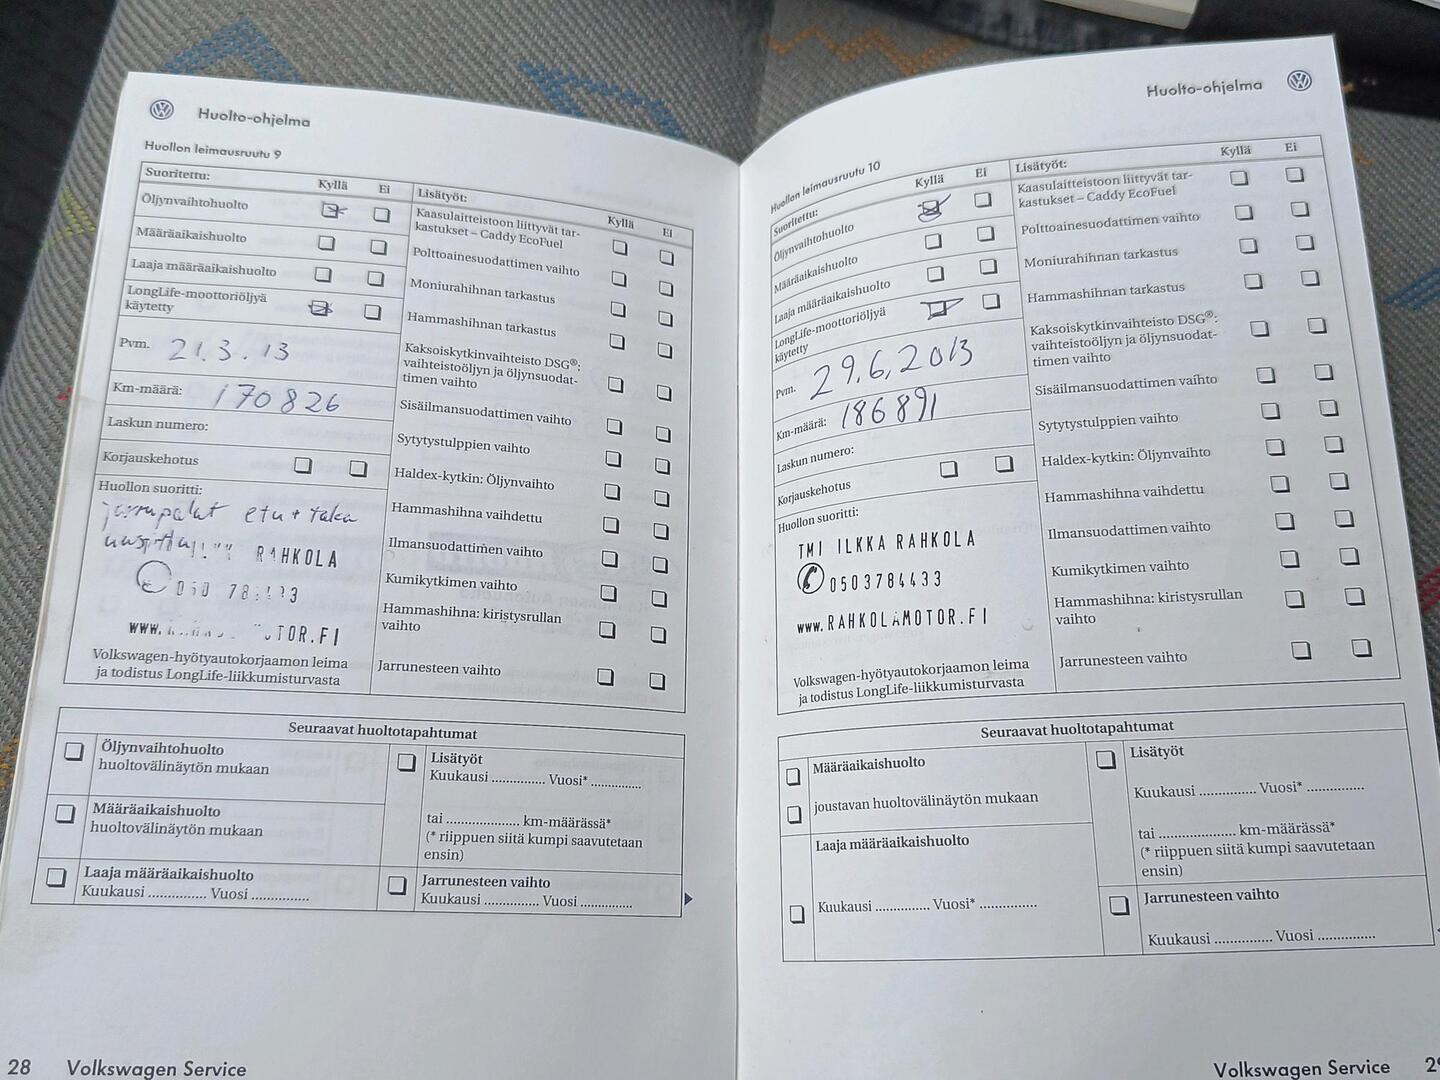 Huolto-ohjelma
Huollon leimausruutu 9
Suoritettu: Kyllä Ei
Öljynvaihtohuolto
Määräaikaishuolto
Laaja määräaikaishuolto
LongLife-moottoriöljyä
käytetty
Pvm. 21.3.13
Km-määrä: 170826
Laskun numero:
Korjauskehotus
Huollon suoritti:
jarrupalat etu + taka
uusittu!
RAHKOLA
MOTOR.FI
Volkswagen-hyötyautokorjaamon leima
ja todistus LongLife-liikkumisturvasta
Lisätyöt: Kyllä Ei
Kaasulaitteistoon liittyvät tar-
kastukset – Caddy EcoFuel
Polttoainesuodattimen vaihto
Moniurahihnan tarkastus
Hammashihnan tarkastus
Kaksoiskytkinvaihteisto DSG®:
vaihteistoöljyn ja öljynsuodat-
timen vaihto
Sisäilmansuodattimen vaihto
Sytytystulppien vaihto
Haldex-kytkin: Öljynvaihto
Hammashihna vaihdettu
Ilmansuodattimen vaihto
Kumikytkimen vaihto
Hammashihna: kiristysrullan
vaihto
Jarrunesteen vaihto
Seuraavat huoltotapahtumat
Öljynvaihtohuolto
huoltovälinäytön mukaan
Määräaikaishuolto
huoltovälinäytön mukaan
Laaja määräaikaishuolto
Kuukausi ............. Vuosi ...............
Lisätyöt
Kuukausi ............... Vuosi* ..............
tai .................... km-määrässä*
(* riippuen siitä kumpi saavutetaan
ensin)
Jarrunesteen vaihto
Kuukausi ............... Vuosi ..............
28 Volkswagen Service
Huolto-ohjelma
Huollon leimausruutu 10
Suoritettu: Kyllä Ei
Öljynvaihtohuolto
Määräaikaishuolto
Laaja määräaikaishuolto
LongLife-moottoriöljyä
käytetty
Pvm. 29.6.2013
Km-määrä: 186891
Laskun numero:
Korjauskehotus
Huollon suoritti:
TMI ILKKA RAHKOLA
0503784433
www.RAHKOLAMOTOR.FI
Volkswagen-hyötyautokorjaamon leima
ja todistus LongLife-liikkumisturvasta
Lisätyöt: Kyllä Ei
Kaasulaitteistoon liittyvät tar-
kastukset – Caddy EcoFuel
Polttoainesuodattimen vaihto
Moniurahihnan tarkastus
Hammashihnan tarkastus
Kaksoiskytkinvaihteisto DSG®:
vaihteistoöljyn ja öljynsuodat-
timen vaihto
Sisäilmansuodattimen vaihto
Sytytystulppien vaihto
Haldex-kytkin: Öljynvaihto
Hammashihna vaihdettu
Ilmansuodattimen vaihto
Kumikytkimen vaihto
Hammashihna: kiristysrullan
vaihto
Jarrunesteen vaihto
Seuraavat huoltotapahtumat
Määräaikaishuolto
joustavan huoltovälinäytön mukaan
Laaja määräaikaishuolto
Kuukausi .............. Vuosi* ...............
Lisätyöt
Kuukausi ............... Vuosi* ...............
tai .................... km-määrässä*
(* riippuen siitä kumpi saavutetaan
ensin)
Jarrunesteen vaihto
Kuukausi ............... Vuosi ...............
Volkswagen Service